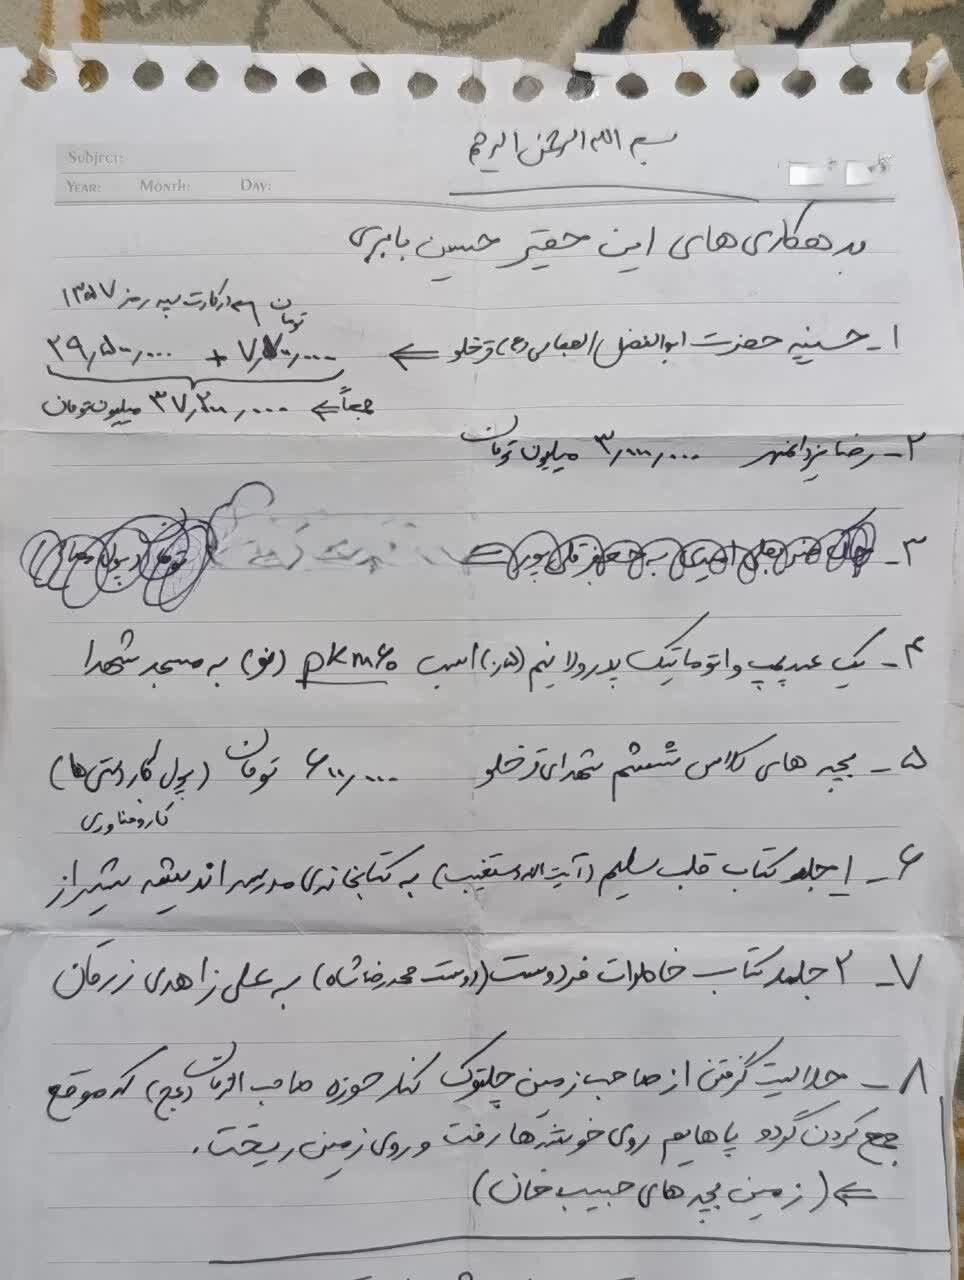 بسم الله الرحمن الرحیم
Subject:
Year: Month: Day:
بدهکاری های این حقیر حسین بابری
۱- حسینیه حضرت ابوالفضل العباس (ع) قرخلو ⇐ ۷٫۷۰۰٫۰۰۰ + ۲۹٫۵۰۰٫۰۰۰
تومان در کارت سپه رمز ۱۳۵۷
جمعاً ⇐ ۳۷٫۲۰۰٫۰۰۰ میلیون تومان
۲- رضا یزدانمهر ۳٫۰۰۰٫۰۰۰ میلیون تومان
۳-
۴- یک عدد پمپ و اتوماتیک پدرولا نیم (۰/۵) اسب pkm60 (نو) به مسجد شهدا
۵- بچه های کلاس ششم شهدای قرخلو ۶۰۰٫۰۰۰ تومان (پول کاردستی ها)
کاروفناوری
۶- ۱ جلد کتاب قلب سلیم (آیت الله دستغیب) به کتابخانه ی مدرسه اندیشه شیراز
۷- ۲ جلد کتاب خاطرات فردوست (دوست محمدرضا شاه) به علی زاهدی زرقان
۸- حلالیت گرفتن از صاحب زمین چلتوک کنار حوزه صاحب الزمان (عج) که موقع
جمع کردن گردو پاهایم روی خوشه ها رفت و روی زمین ریخت.
⇐ (زمین بچه های حبیب خان)